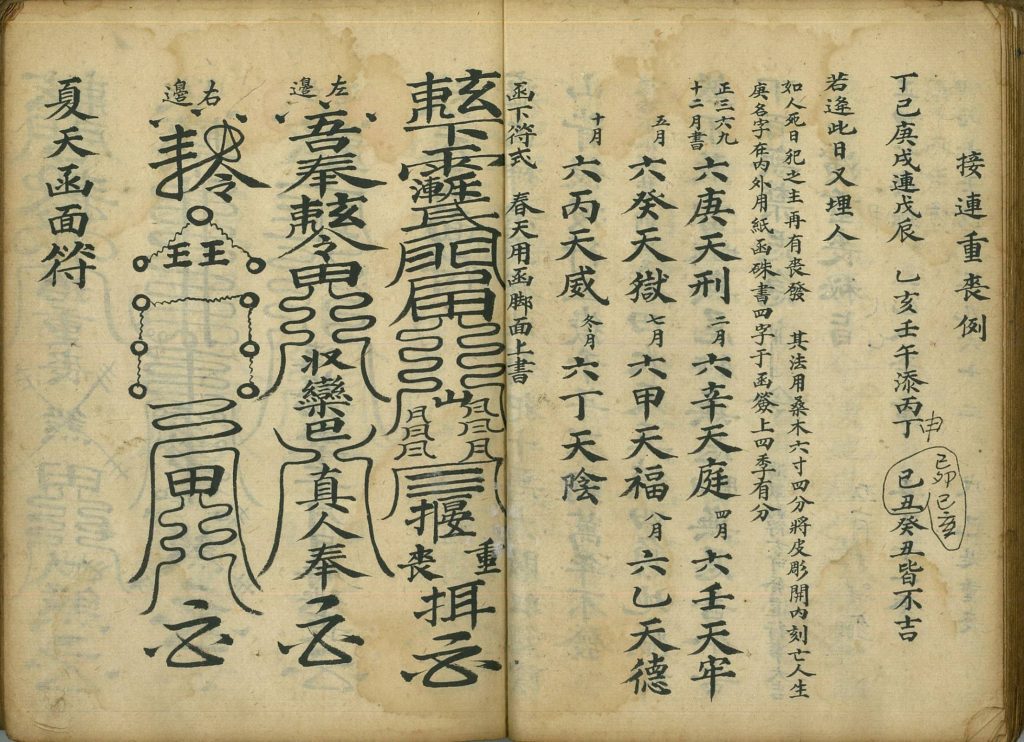 接連重喪例
丁巳庚戌連戊辰 乙亥壬午添丙丁申 己丑癸丑皆不吉
己卯己亥
若逢此日又埋人
如人死日犯之主再有喪發 其法用桑木六寸四分將皮彫開內刻亡人生
庚名字在內外用紙函硃書四字于函簽上四季有分
正三六九十二月書 六庚天刑 二月 六辛天庭 四月 六壬天牢
五月 六癸天獄 七月 六甲天福 八月 六乙天德
十月 六丙天威 冬月 六丁天陰
函下符式 春天用函脚面上書
重喪
左邊
吾奉
収欒巴
真人奉
右邊
王王
夏天函面符